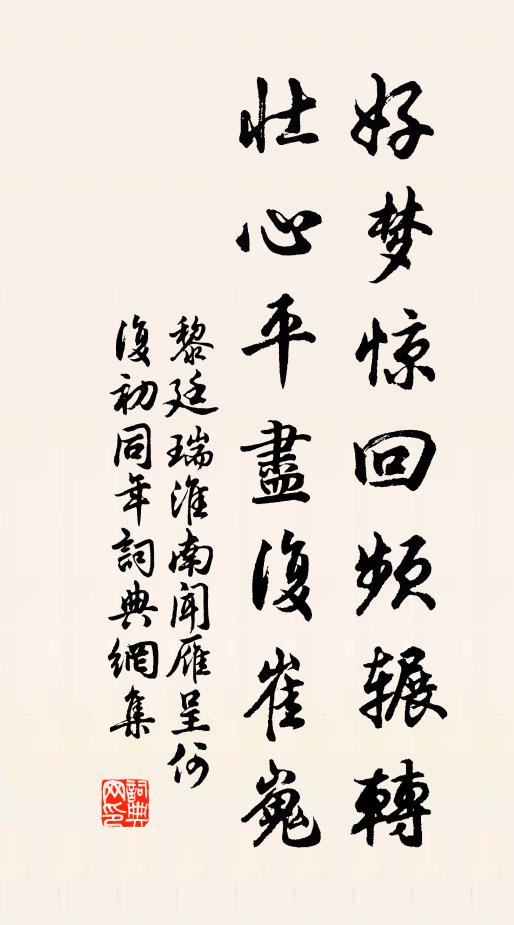 好梦惊回频辗轉
壮心平盡復崔嵬
黎廷瑞淮南闻雁呈何
復初同年詞典網集
詞典网印